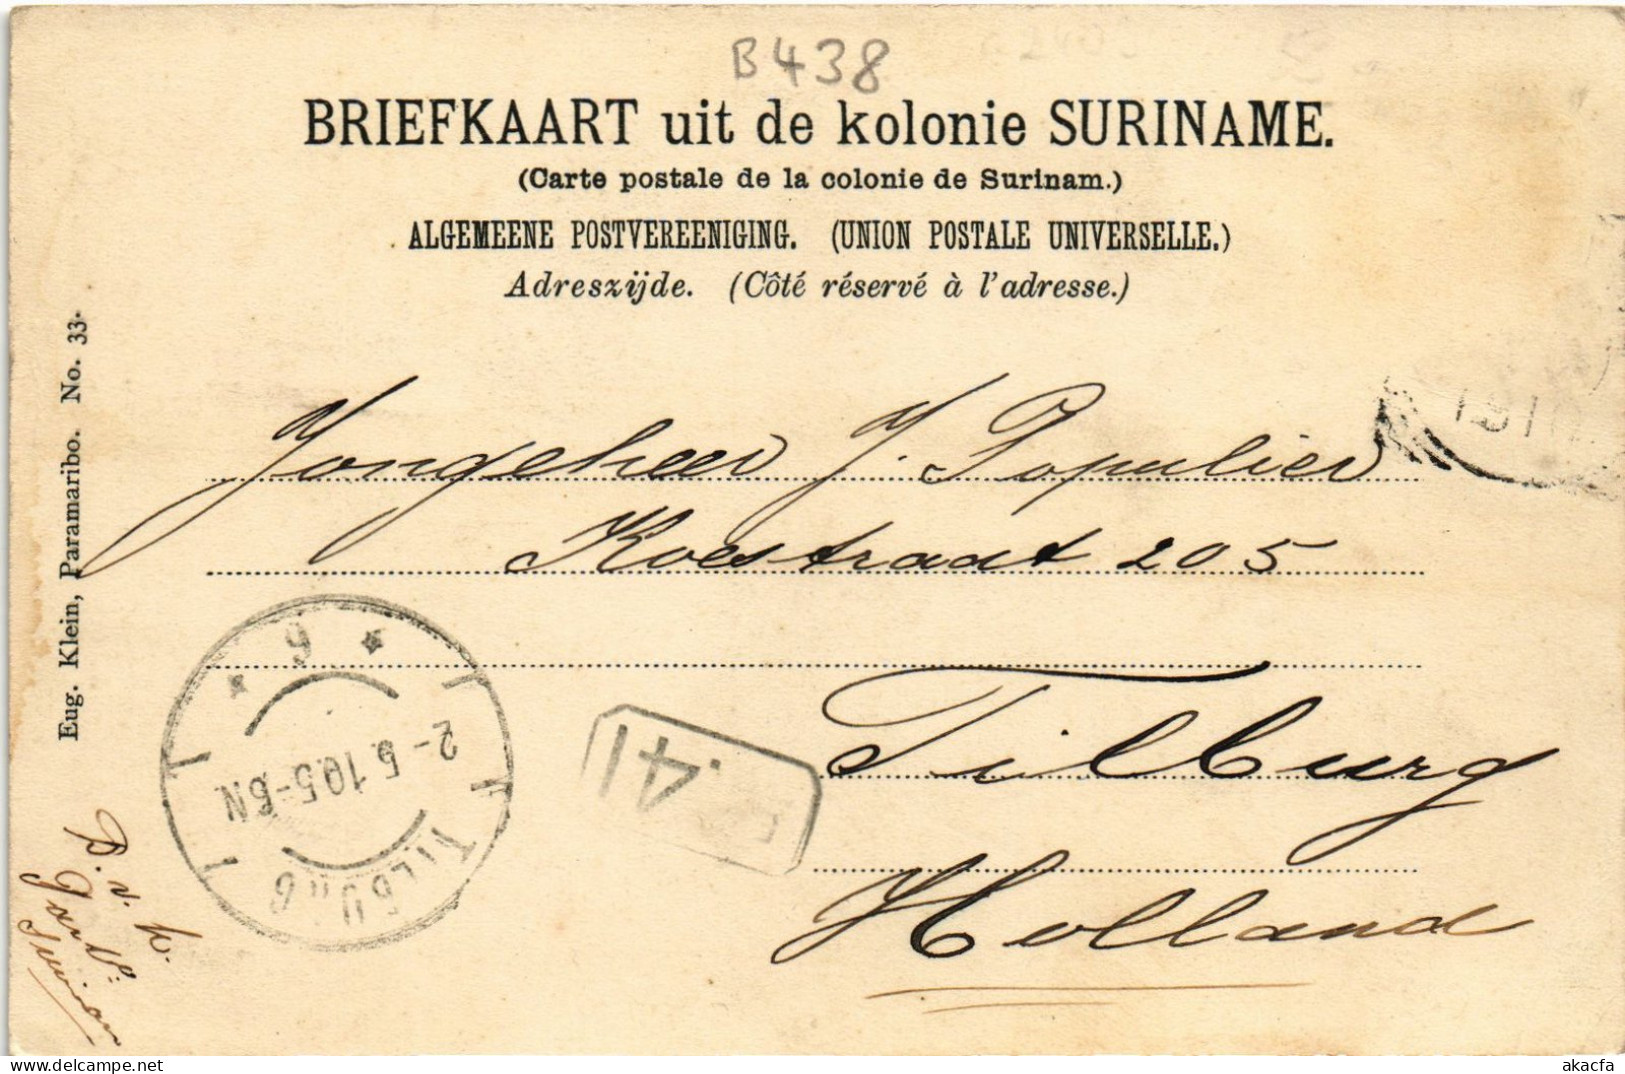 B438
BRIEFKAART uit de kolonie SURINAME.
(Carte postale de la colonie de Surinam.)
ALGEMEENE POSTVEREENIGING. (UNION POSTALE UNIVERSELLE.)
Adreszijde. (Côté réservé à l'adresse.)
Eug. Klein, Paramaribo. No. 33.
Jongeheer J. Populier
Koestraat 205
Tilburg
Holland
* 9 *
2-5.10.5-6N
TILBURG
41
1910
D. v. h.
akacfa